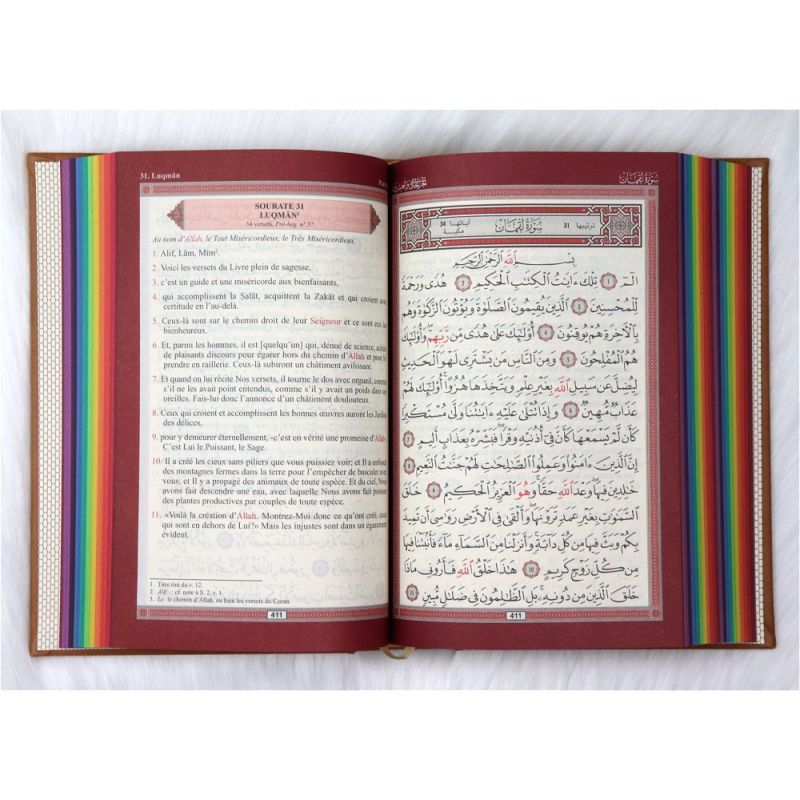 31. Luqmān
SOURATE 31
LUQMĀN¹
34 versets, Pré-hég. n° 57
Au nom d'Allah, le Tout Miséricordieux, le Très Miséricordieux.
1. Alif, Lām, Mīm².
2. Voici les versets du Livre plein de sagesse,
3. c'est un guide et une miséricorde aux bienfaisants,
4. qui accomplissent la Salāt, acquittent la Zakāt et qui croient avec
certitude en l'au-delà.
5. Ceux-là sont sur le chemin droit de leur Seigneur et ce sont eux les
bienheureux.
6. Et, parmi les hommes, il est [quelqu'un] qui, dénué de science, achète
de plaisants discours pour égarer hors du chemin d'Allah et pour le
prendre en raillerie. Ceux-là subiront un châtiment avilissant.
7. Et quand on lui récite Nos versets, il tourne le dos avec orgueil, comme
s'il ne les avait point entendus, comme s'il y avait un poids dans ses
oreilles. Fais-lui donc l'annonce d'un châtiment douloureux.
8. Ceux qui croient et accomplissent les bonnes œuvres auront les Jardins
des délices,
9. pour y demeurer éternellement, «c'est en vérité une promesse d'Allah».
C'est Lui le Puissant, le Sage.
10. Il a créé les cieux sans piliers que vous puissiez voir; et Il a enfoncé
des montagnes fermes dans la terre pour l'empêcher de basculer avec
vous; et Il y a propagé des animaux de toute espèce. Et du ciel, Nous
avons fait descendre une eau, avec laquelle Nous avons fait pousser
des plantes productives par couples de toute espèce.
11. «Voilà la création d'Allah. Montrez-Moi donc ce qu'ont créé, ceux
qui sont en dehors de Lui?» Mais les injustes sont dans un égarement
évident.
1. Titre tiré du v. 12.
2. Alif...: cf. note à S. 2, v. 1.
3. Le: le chemin d'Allah, ou bien les versets du Coran.
411
سورة لقمان
ترتيبها 31 سُورَةُ لُقْمَان آياتها 34 مكية
بِسْمِ اللَّهِ الرَّحْمَٰنِ الرَّحِيمِ
الٓمٓ ١ تِلْكَ ءَايَٰتُ ٱلْكِتَٰبِ ٱلْحَكِيمِ ٢ هُدًى وَرَحْمَةً
لِّلْمُحْسِنِينَ ٣ ٱلَّذِينَ يُقِيمُونَ ٱلصَّلَوٰةَ وَيُؤْتُونَ ٱلزَّكَوٰةَ وَهُم
بِٱلْأَخِرَةِ هُمْ يُوقِنُونَ ٤ أُو۟لَٰٓئِكَ عَلَىٰ هُدًى مِّن رَّبِّهِمْ وَأُو۟لَٰٓئِكَ
هُمُ ٱلْمُفْلِحُونَ ٥ وَمِنَ ٱلنَّاسِ مَن يَشْتَرِى لَهْوَ ٱلْحَدِيثِ
لِيُضِلَّ عَن سَبِيلِ ٱللَّهِ بِغَيْرِ عِلْمٍ وَيَتَّخِذَهَا هُزُوًا أُو۟لَٰٓئِكَ لَهُمْ
عَذَابٌ مُّهِينٌ ٦ وَإِذَا تُتْلَىٰ عَلَيْهِ ءَايَٰتُنَا وَلَّىٰ مُسْتَكْبِرًا
كَأَن لَّمْ يَسْمَعْهَا كَأَنَّ فِىٓ أُذُنَيْهِ وَقْرًا فَبَشِّرْهُ بِعَذَابٍ أَلِيمٍ ٧
إِنَّ ٱلَّذِينَ ءَامَنُوا۟ وَعَمِلُوا۟ ٱلصَّٰلِحَٰتِ لَهُمْ جَنَّٰتُ ٱلنَّعِيمِ ٨
خَٰلِدِينَ فِيهَا وَعْدَ ٱللَّهِ حَقًّا وَهُوَ ٱلْعَزِيزُ ٱلْحَكِيمُ ٩ خَلَقَ
ٱلسَّمَٰوَٰتِ بِغَيْرِ عَمَدٍ تَرَوْنَهَا وَأَلْقَىٰ فِى ٱلْأَرْضِ رَوَٰسِىَ أَن تَمِيدَ
بِكُمْ وَبَثَّ فِيهَا مِن كُلِّ دَآبَّةٍ وَأَنزَلْنَا مِنَ ٱلسَّمَآءِ مَآءً فَأَنۢبَتْنَا فِيهَا
مِن كُلِّ زَوْجٍ كَرِيمٍ ١٠ هَٰذَا خَلْقُ ٱللَّهِ فَأَرُونِى مَاذَا
خَلَقَ ٱلَّذِينَ مِن دُونِهِۦ بَلِ ٱلظَّٰلِمُونَ فِى ضَلَٰلٍ مُّبِينٍ ١١
411